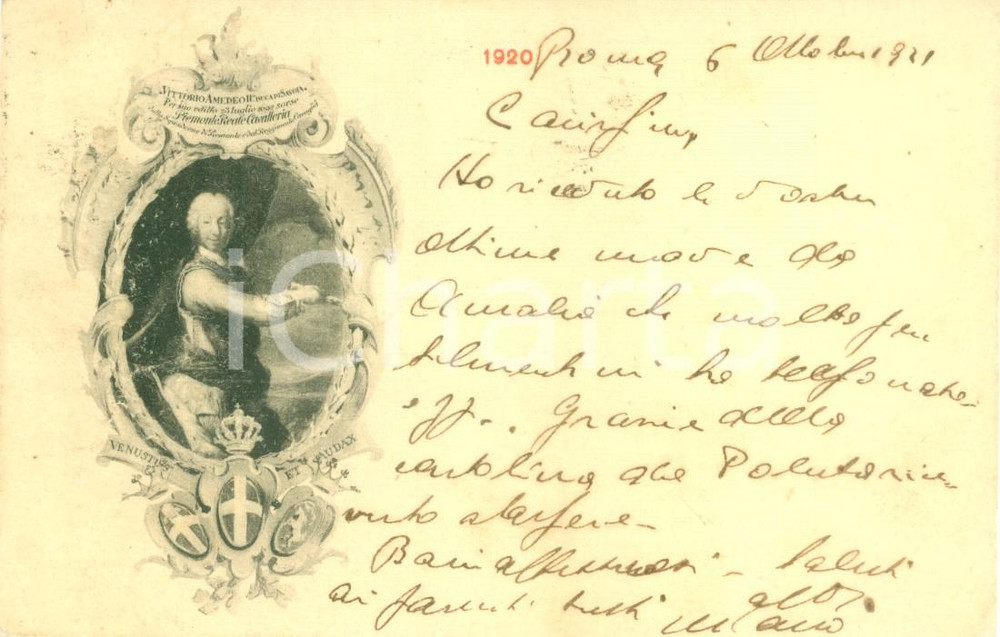 VITTORIO AMEDEO II. DUCA DI SAVOIA
Per suo editto 23 luglio 1692 sorse
Piemonte Reale Cavalleria
VENUSTUS ET AUDAX
1920 Roma 6 Ottobre 1921
Ho ricevuto le vostre
ottime nuove da
Amalia che molto gen
tilmente mi ha telefonato
Grazie della
cartolina che
Baci affettuosi - Saluti
ai parenti tutti
iCharta